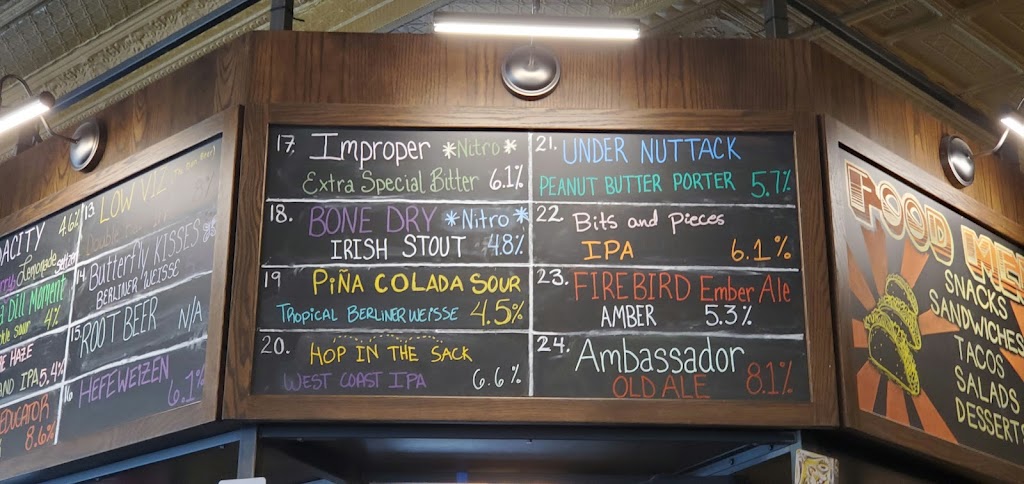 ACITY 4.6%
Lemonade Seltzer
Dill Moment
Sour 4%
HAZE
AND IPA 5.4%
EDUCATOR
8.6%
13. LOW VIZ
14. Butterfly KISSES
BERLINER WEISSE
15. ROOT BEER N/A
16 HEFEWEIZEN 6.1%
17. Improper *Nitro*
Extra Special Bitter 6.1%
18. BONE DRY *Nitro*
IRISH STOUT 4.8%
19 PIÑA COLADA SOUR
TROPICAL BERLINERWEISSE 4.5%
20. HOP IN THE SACK
WEST COAST IPA 6.6%
21. UNDER NUTTACK
PEANUT BUTTER PORTER 5.7%
22. Bits and pieces
IPA 6.1%
23. FIREBIRD Ember Ale
AMBER 5.3%
24. Ambassador
OLD ALE 8.1%
FOOD ME
SNACKS
SANDWICHES
TACOS
SALADS
DESSERT